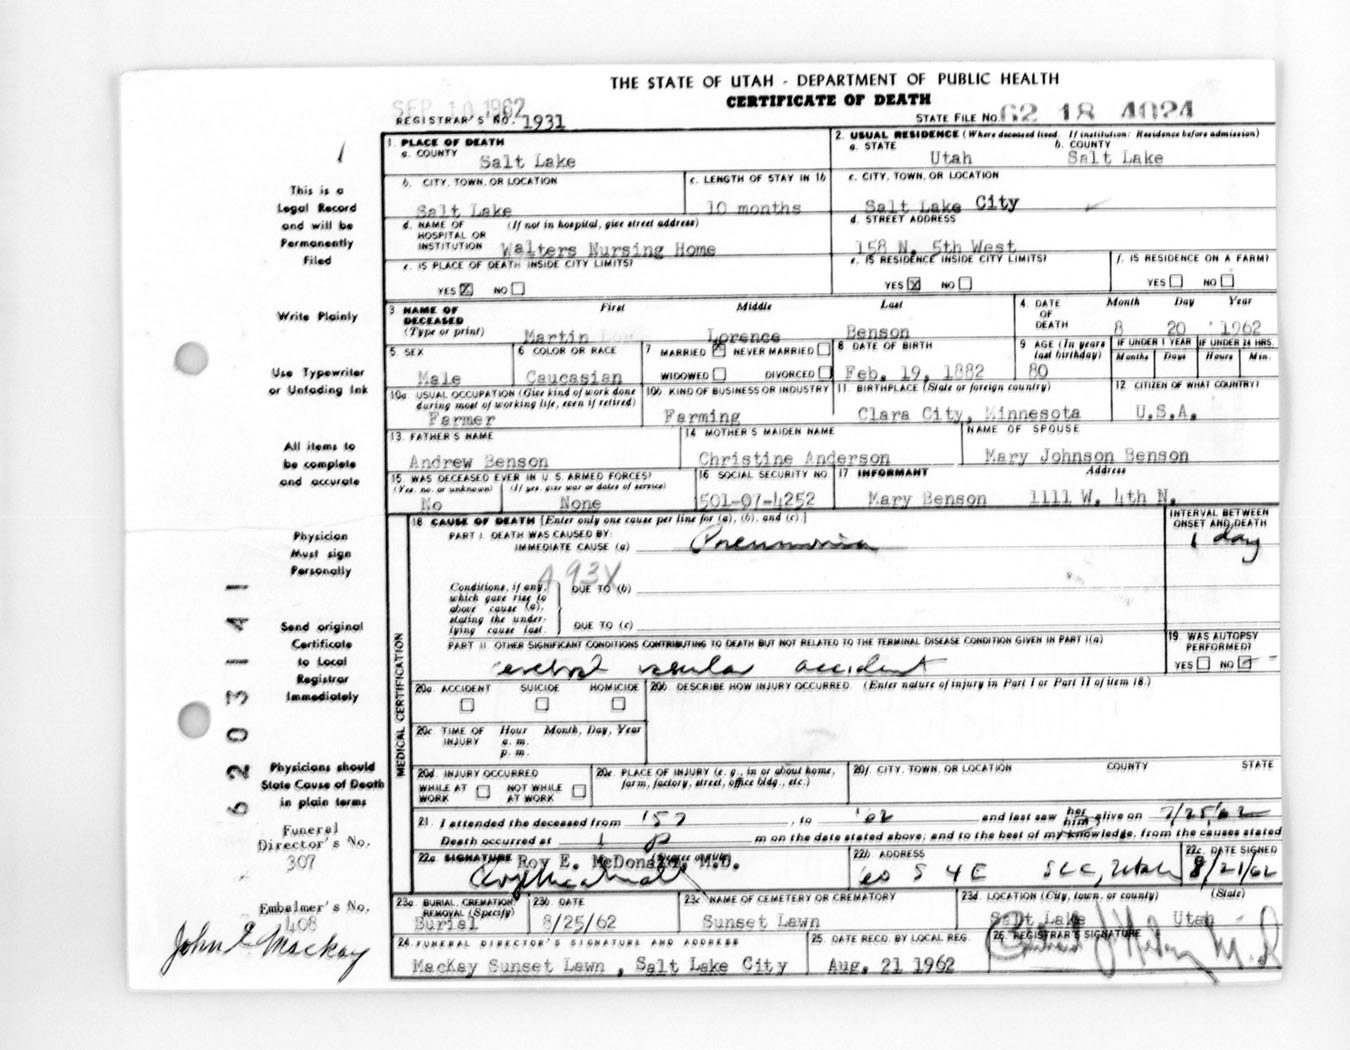 THE STATE OF UTAH - DEPARTMENT OF PUBLIC HEALTH
CERTIFICATE OF DEATH
SEP 10 1962
REGISTRAR'S NO. 1931
STATE FILE NO. 62 18 4024
1. PLACE OF DEATH
a. COUNTY Salt Lake
2. USUAL RESIDENCE (Where deceased lived. If institution: Residence before admission)
a. STATE Utah b. COUNTY Salt Lake
b. CITY, TOWN, OR LOCATION Salt Lake
c. LENGTH OF STAY IN 1b 10 months
c. CITY, TOWN, OR LOCATION Salt Lake City
d. NAME OF HOSPITAL OR INSTITUTION (If not in hospital, give street address) Walters Nursing Home
d. STREET ADDRESS 158 N. 5th West
e. IS PLACE OF DEATH INSIDE CITY LIMITS? YES X NO
e. IS RESIDENCE INSIDE CITY LIMITS? YES X NO
f. IS RESIDENCE ON A FARM? YES NO
3 NAME OF DECEASED (Type or print) First Middle Last
Martin Lorence Benson
4. DATE OF DEATH Month Day Year
8 20 1962
5. SEX Male
6 COLOR OR RACE Caucasian
7 MARRIED X NEVER MARRIED
WIDOWED DIVORCED
8 DATE OF BIRTH Feb. 19, 1882
9 AGE (In years last birthday) 80
IF UNDER 1 YEAR Months Days
IF UNDER 24 HRS. Hours Min.
10a. USUAL OCCUPATION (Give kind of work done during most of working life, even if retired) Farmer
10b KIND OF BUSINESS OR INDUSTRY Farming
11. BIRTHPLACE (State or foreign country) Clara City, Minnesota
12 CITIZEN OF WHAT COUNTRY? U.S.A.
13. FATHER'S NAME Andrew Benson
14 MOTHER'S MAIDEN NAME Christine Anderson
NAME OF SPOUSE Mary Johnson Benson
15 WAS DECEASED EVER IN U.S. ARMED FORCES? (Yes, no, or unknown) (If yes, give war or dates of service)
No None
16 SOCIAL SECURITY NO. 501-07-4252
17 INFORMANT Address
Mary Benson 1111 W. 4th N.
MEDICAL CERTIFICATION
18 CAUSE OF DEATH [Enter only one cause per line for (a), (b), and (c).]
PART I. DEATH WAS CAUSED BY:
IMMEDIATE CAUSE (a) Pneumonia
INTERVAL BETWEEN ONSET AND DEATH
1 day
493X
Conditions, if any, which gave rise to above cause (a), stating the underlying cause last.
DUE TO (b)
DUE TO (c)
PART II. OTHER SIGNIFICANT CONDITIONS CONTRIBUTING TO DEATH BUT NOT RELATED TO THE TERMINAL DISEASE CONDITION GIVEN IN PART I(a)
cerebral vascular accident
19. WAS AUTOPSY PERFORMED?
YES NO
20a. ACCIDENT SUICIDE HOMICIDE
20b. DESCRIBE HOW INJURY OCCURRED (Enter nature of injury in Part I or Part II of item 18.)
20c. TIME OF INJURY Hour Month, Day, Year
a. m.
p. m.
20d. INJURY OCCURRED
WHILE AT WORK NOT WHILE AT WORK
20e. PLACE OF INJURY (e. g., in or about home, farm, factory, street, office bldg., etc.)
20f. CITY, TOWN, OR LOCATION COUNTY STATE
21. I attended the deceased from '57, to '62 and last saw her him alive on 7/25/62
Death occurred at 1 P m on the date stated above; and to the best of my knowledge, from the causes stated
22a SIGNATURE Roy E. McDonald, M.D.
22b. ADDRESS 60 S 4 E SLC, Utah
22c. DATE SIGNED 8/21/62
23a. BURIAL, CREMATION, REMOVAL (Specify) Burial
23b. DATE 8/25/62
23c NAME OF CEMETERY OR CREMATORY Sunset Lawn
23d. LOCATION (City, town, or county) (State)
Salt Lake Utah
24 FUNERAL DIRECTOR'S SIGNATURE AND ADDRESS
MacKay Sunset Lawn, Salt Lake City
25. DATE RECD. BY LOCAL REG. Aug. 21 1962
26. REGISTRAR'S SIGNATURE
This is a
Legal Record
and will be
Permanently
Filed
Write Plainly
Use Typewriter
or Unfading Ink
All items to
be complete
and accurate
Physician
Must sign
Personally
Send original
Certificate
to Local
Registrar
Immediately
Physicians should
State Cause of Death
in plain terms
Funeral
Director's No.
307
Embalmer's No.
408
John E Mackay
6203141